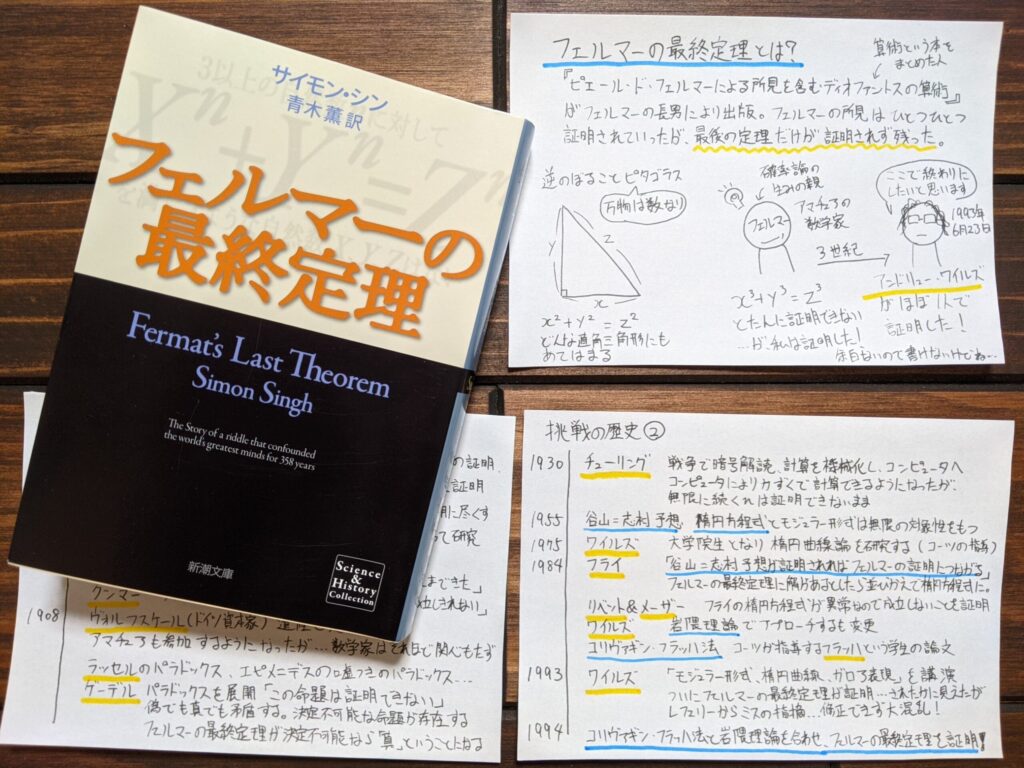 3以上の自然数nに対して
Xⁿ+Yⁿ=Zⁿ
サイモン・シン
青木薫 訳
フェルマーの
最終定理
Fermat's Last Theorem
Simon Singh
The Story of a riddle that confounded
the world's greatest minds for 358 years
新潮文庫
Science
& History
Collection
フェルマーの最終定理とは?
算術という本を
まとめた人
『ピエール・ド・フェルマーによる所見を含むディオファントスの算術』
がフェルマーの長男により出版。フェルマーの所見はひとつひとつ
証明されていったが、最後の定理だけが証明されず残った。
逆のぼることピタゴラス
万物は数なり
y
z
x
x²+y²=z²
どんな直角三角形にも
あてはまる
確率論の
生みの親
アマチュアの
数学家
フェルマー
x³+y³=z³
とたんに証明できない
…が私は証明した!
余白ないので書けないけどね…
3世紀
ここで終わりに
したいと思います
1993年
6月23日
アンドリュー・ワイルズ
がほぼ1人で
証明した!
の証明、
証明
に尽くす
て研究
まできた」
クンマー
立しきれない」
1908
ヴォルフスケール(ドイツ資本家)
アマチュアも参加するようになったが…数学家はそれ目で関心もたず
ラッセルのパラドックス、エピメニデスのうそつきのパラドックス…
ゲーデル パラドックスを展開「この命題は証明できない」
偽でも真でも矛盾する。決定不可能な命題が存在する
フェルマーの最終定理が決定不可能なら「真」ということになる
挑戦の歴史②
1930 チューリング 戦争で暗号解読、計算を機械化し、コンピュータへ
コンピュータにより力ずくで計算できるようになったが、
無限に続くれば証明できないまま
1955 谷山=志村予想 楕円方程式とモジュラー形式は無限の対称性をもつ
1975 ワイルズ 大学院生となり楕円曲線論を研究する(コーツの指導)
1984 フライ 「谷山=志村予想が証明されればフェルマーの証明につながる」
フェルマーの最終定理に解があるとしたら並びかえて楕円方程式に。
リベット&メーザー フライの楕円方程式が異常なので成立しないことを証明
ワイルズ 岩澤理論でアプローチするも変更
コリヴァギン・フラッハ法 コーツが指導するフラッハという学生の論文
1993 ワイルズ 「モジュラー形式、楕円曲線、ガロア表現」を講演
ついにフェルマーの最終定理が証明…されたかに見えたが
レフェリーからミスの指摘…修正できず大混乱!
1994 コリヴァギン・フラッハ法と岩澤理論を合わせ、フェルマーの最終定理を証明!